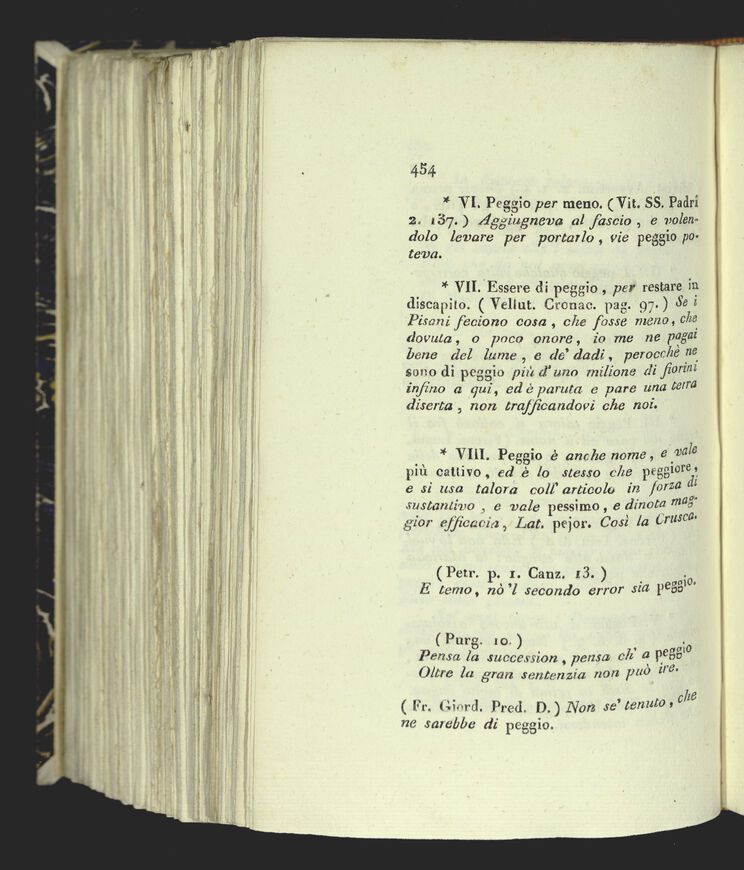 454
* VI. Peggio per meno. (Vit. SS. Padri
2. 137.) Aggiugneva al fascio, e volen-
dolo levare per portarlo, vie peggio po-
teva.
* VII. Essere di peggio, per restare in
discapito. (Vellut. Cronac. pag. 97.) Se i
Pisani feciono cosa, che fosse meno, che
dovuta, o poco onore, io me ne pagai
bene del lume, e de' dadi, perocchè ne
sono di peggio più d'uno milione di fiorini
infino a qui, ed è paruta e pare una terra
diserta, non trafficandovi che noi.
* VIII. Peggio è anche nome, e vale
più cattivo, ed è lo stesso che peggiore,
e si usa talora coll' articolo in forza di
sustantivo, e vale pessimo, e dinota mag-
gior efficacia, Lat. pejor. Così la Crusca.
(Petr. p. 1. Canz. 13.)
E temo, nò 'l secondo error sia peggio.
(Purg. 10.)
Pensa la succession, pensa ch' a peggio
Oltre la gran sentenzia non può ire.
(Fr. Giord. Pred. D.) Non se' tenuto, che
ne sarebbe di peggio.